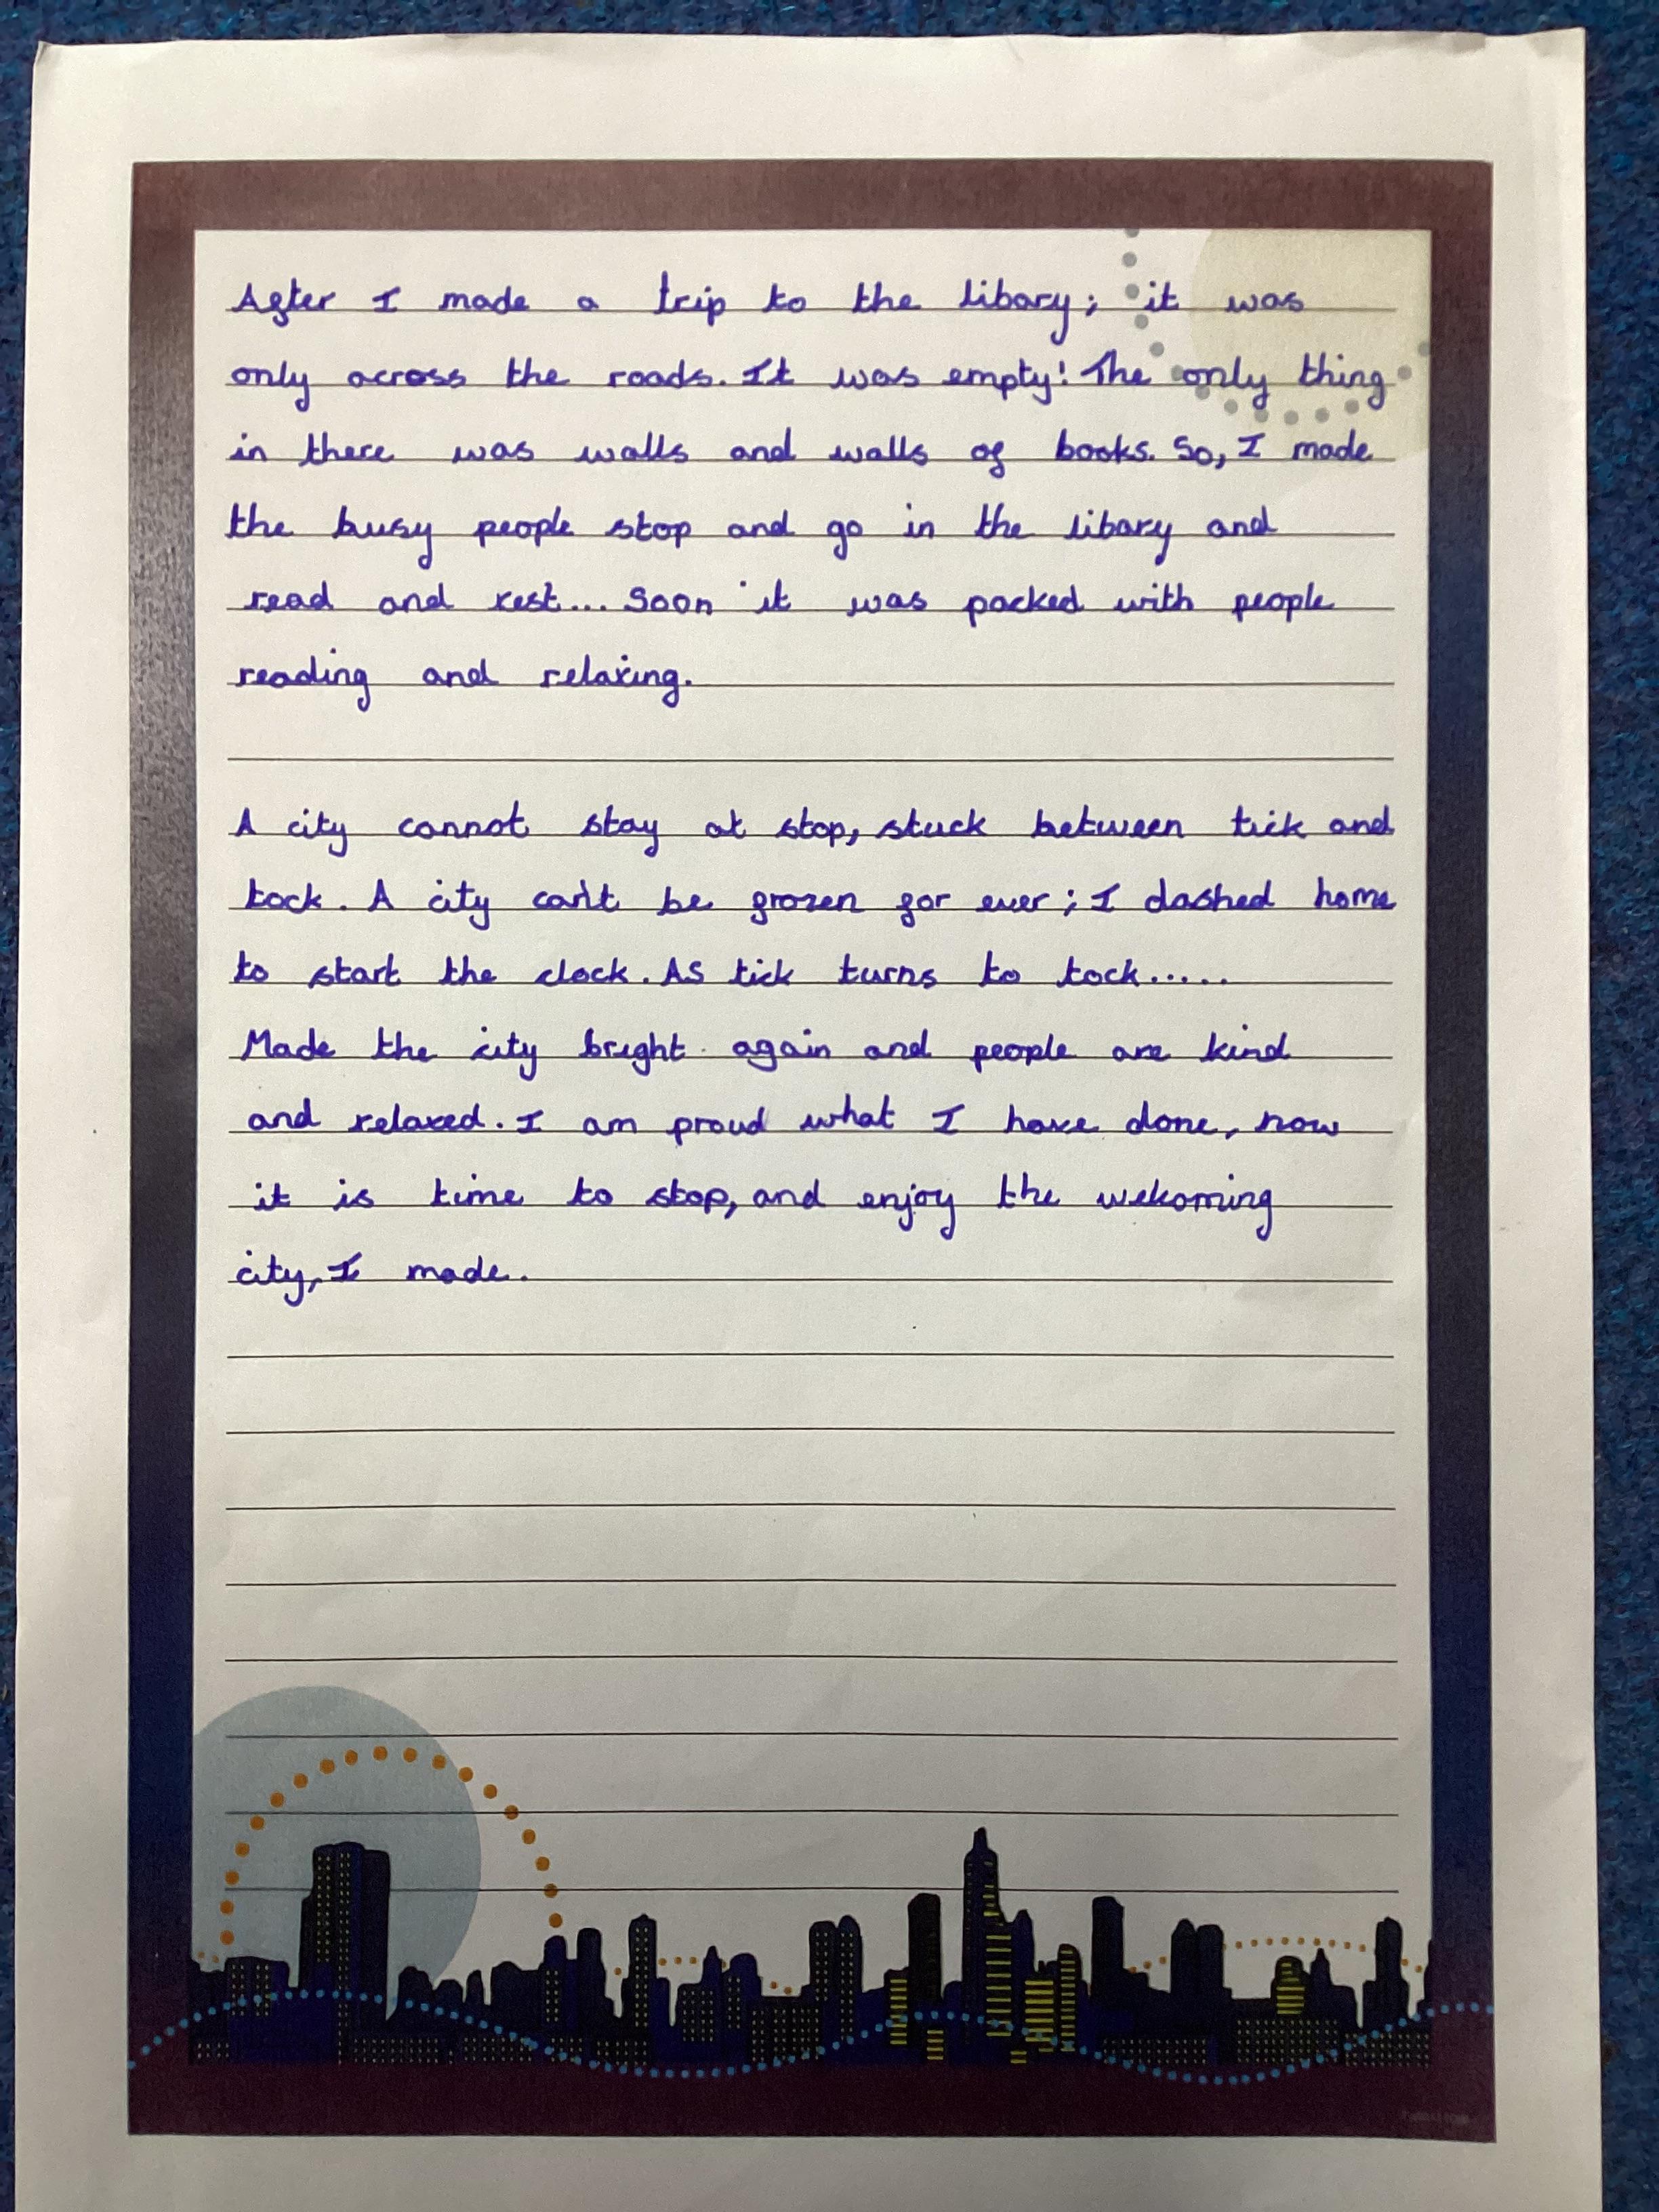 After I made a trip to the libary; it was
only across the roads. It was empty! The only thing
in there was walls and walls of books. So, I made
the busy people stop and go in the libary and
read and rest... Soon it was packed with people
reading and relaxing.
A city cannot stay at stop, stuck between tick and
tock. A city can't be frozen for ever; I dashed home
to start the clock. As tick turns to tock.....
Made the city bright again and people are kind
and relaxed. I am proud what I have done, now
it is time to stop, and enjoy the welcoming
city, I made.